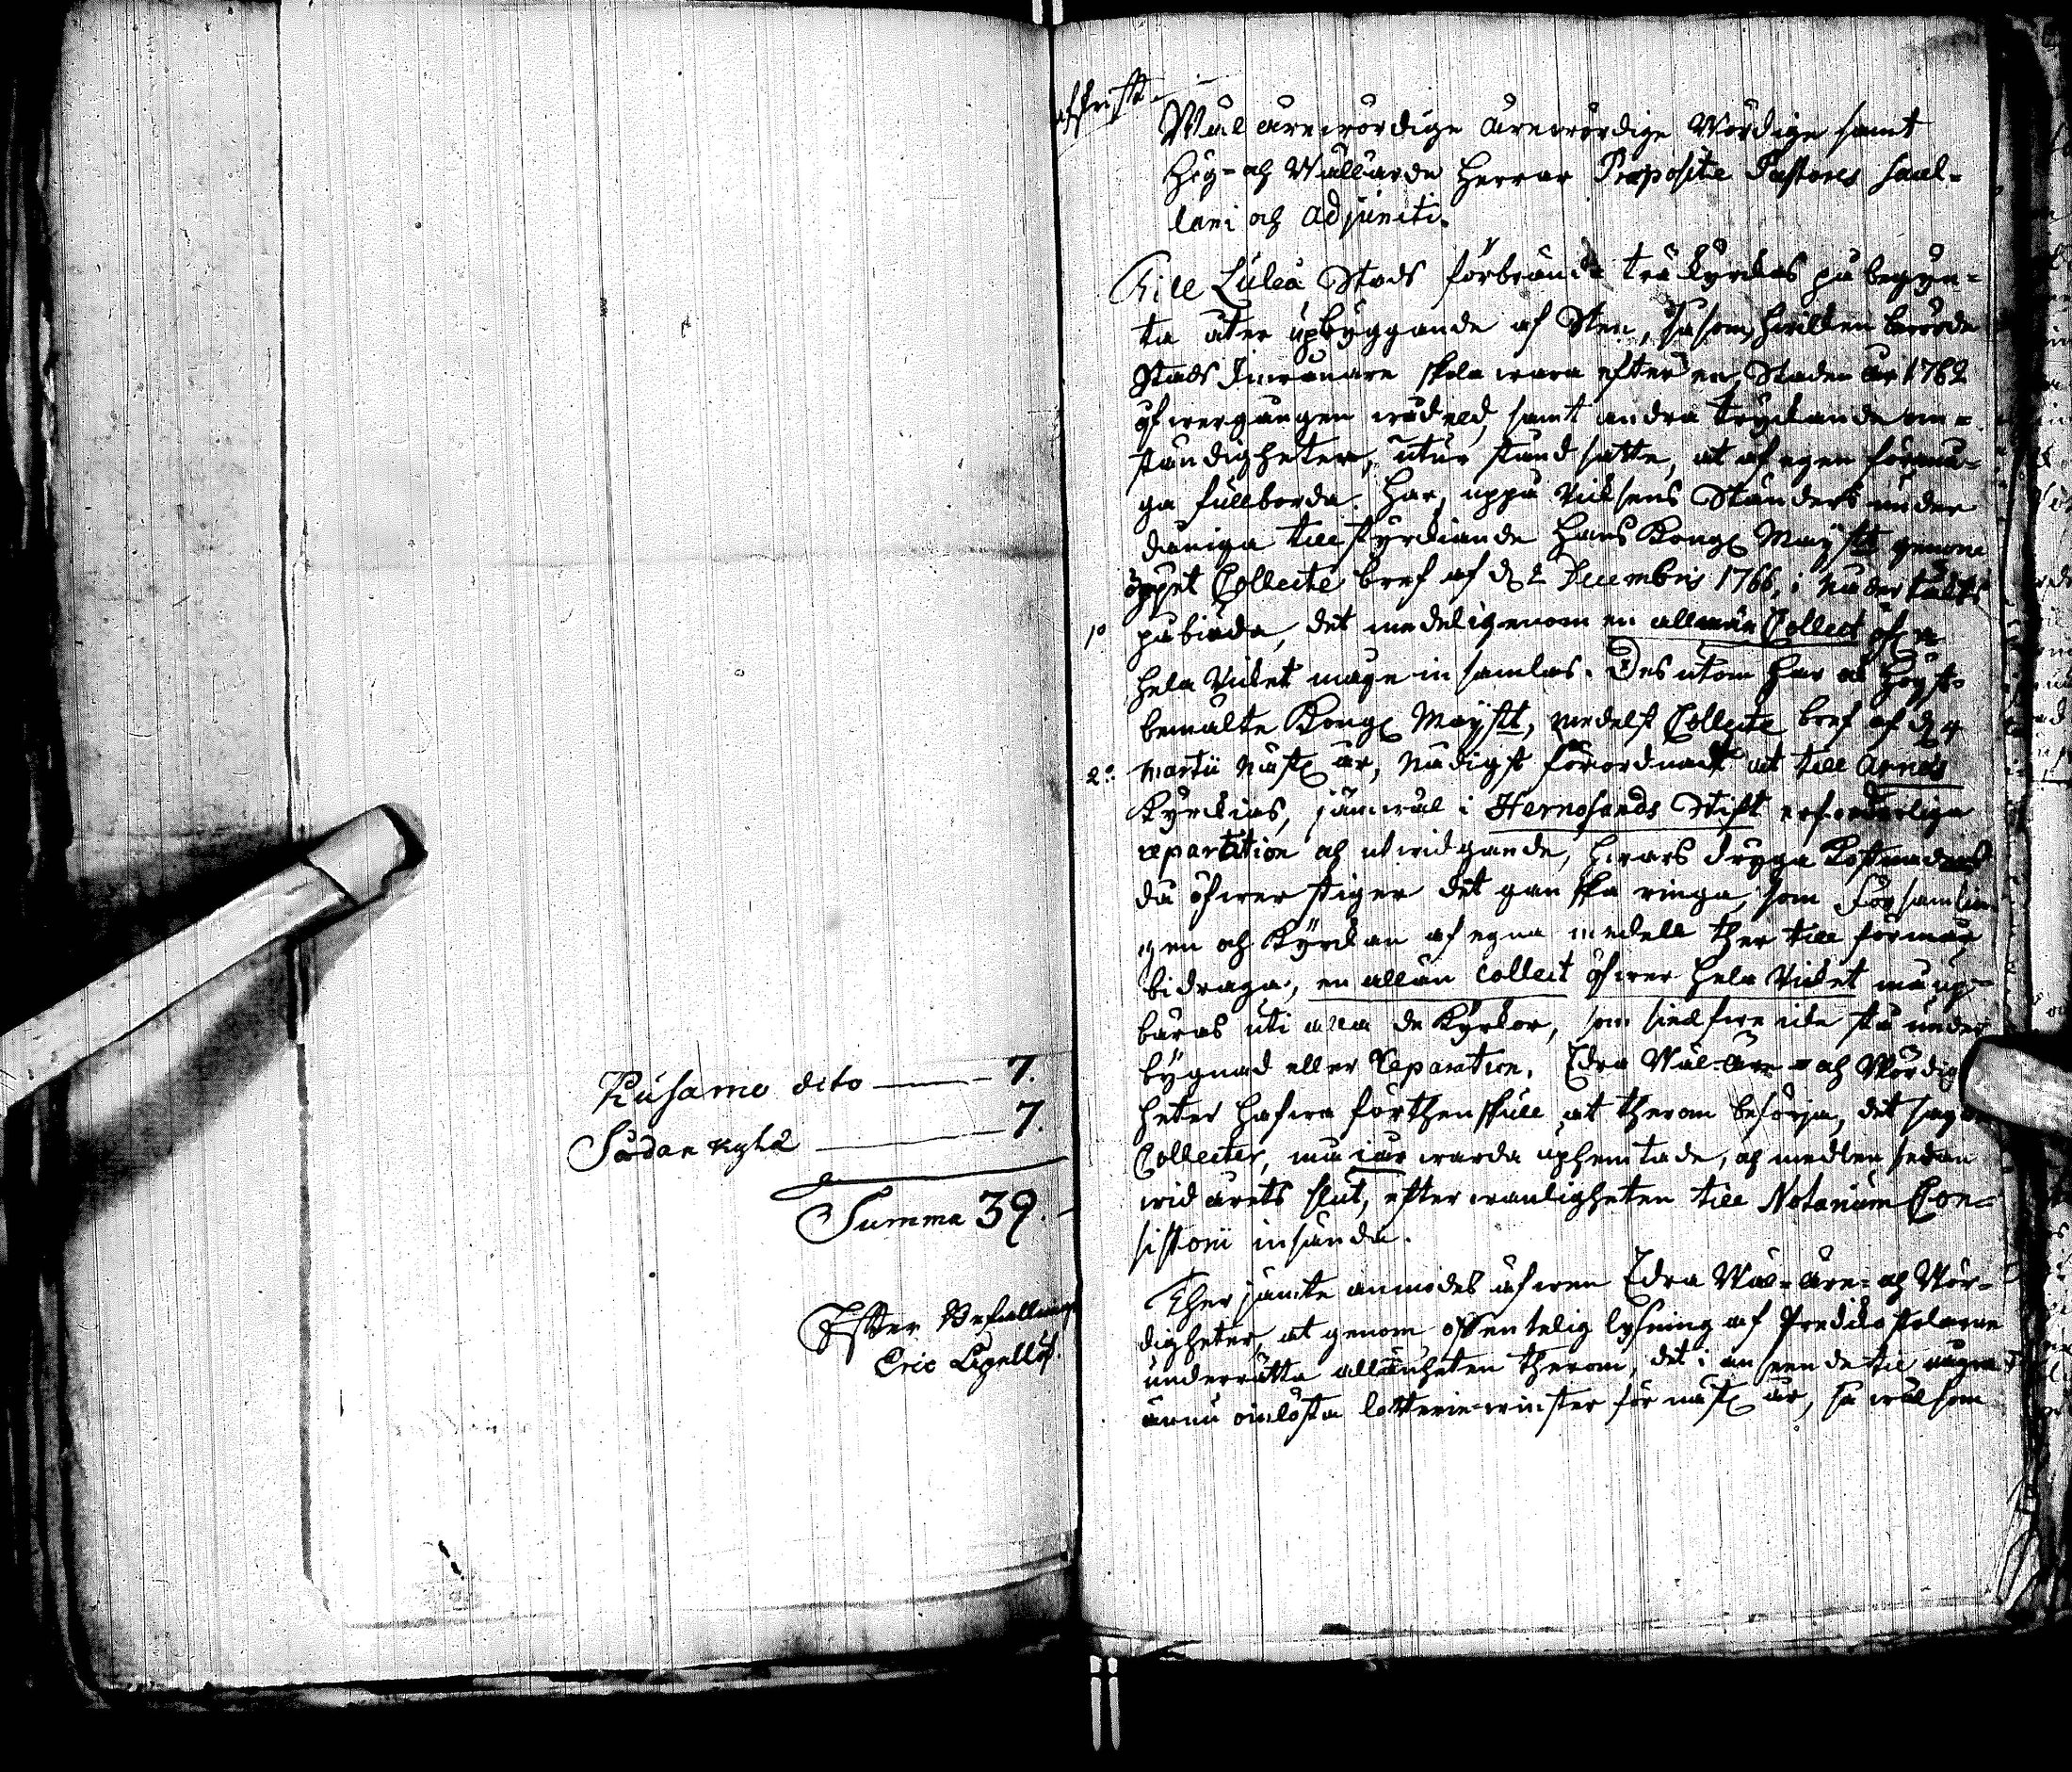 Kusamo dito ——— 7.
Sodankylä ——— 7.
Summa 39.
Efter Befallning
Eric
afskrift.
Wäl ärewördige ärewördige Wördige samt
Hög= och Wällärde Herrar Præpositi Pastores Sacel=
lani och adjuncti.
Till Luleå Stads förbrända träkyrkas påbegyn=
ta åter upbyggande af Sten, såsom hvilken berörde
Stads Inwånare skola wara efter en Staden år 1762
öfwergången wådeld, samt andra tryckande om=
ständigheter, utur stånd satte, at af egen förmå=
ga fullborda. Har, uppå Riksens Ständers under
dåniga tillstyrkiande Hans Kongl Mayst genom
öppet Collecte bref af d 2 Decembris 1766, i Nåder
1o påbiuda, det medel igenom en allmän Collect öfwer
hela Riket måge insamlas. Des utom har ock Högst
bemälte Kongl Mayst, medelst Collecte bref af d 4
2o Martii näst år, Nådigst förordnadt at till Arnäs
Kyrkias, jämwäl i Hernösands Stift erforderliga
reparation och utwidgande, hwars dryga Kostnad
då öfwer stiger det ganska ringa, som Församlin
gen och Kyrkan af egna medell ther till förmår
bidraga, en allmän collect öfwer hela Riket må up
bäras uti alla de Kyrkor, som sielfwe icke stå under
bygnad eller Reparation. Edra Wäl-Äre= och Wördig
heter hafwa förthenskull at therom besörja, det sagde
Collecter, må i år warda uphemtade, och medlen sedan
wid årets slut, efter wanligheten till Notarium Con=
sistorii insända.
Ther jämte anmodas äfwen Edra Wäl= Äre= och Wör=
digheter, at genom offentelig lysning af Predikostolarne
underrätta allmänheten therom, det i anseende til några
ännu oinlösta lotterie-winster för näst år, så wäl som